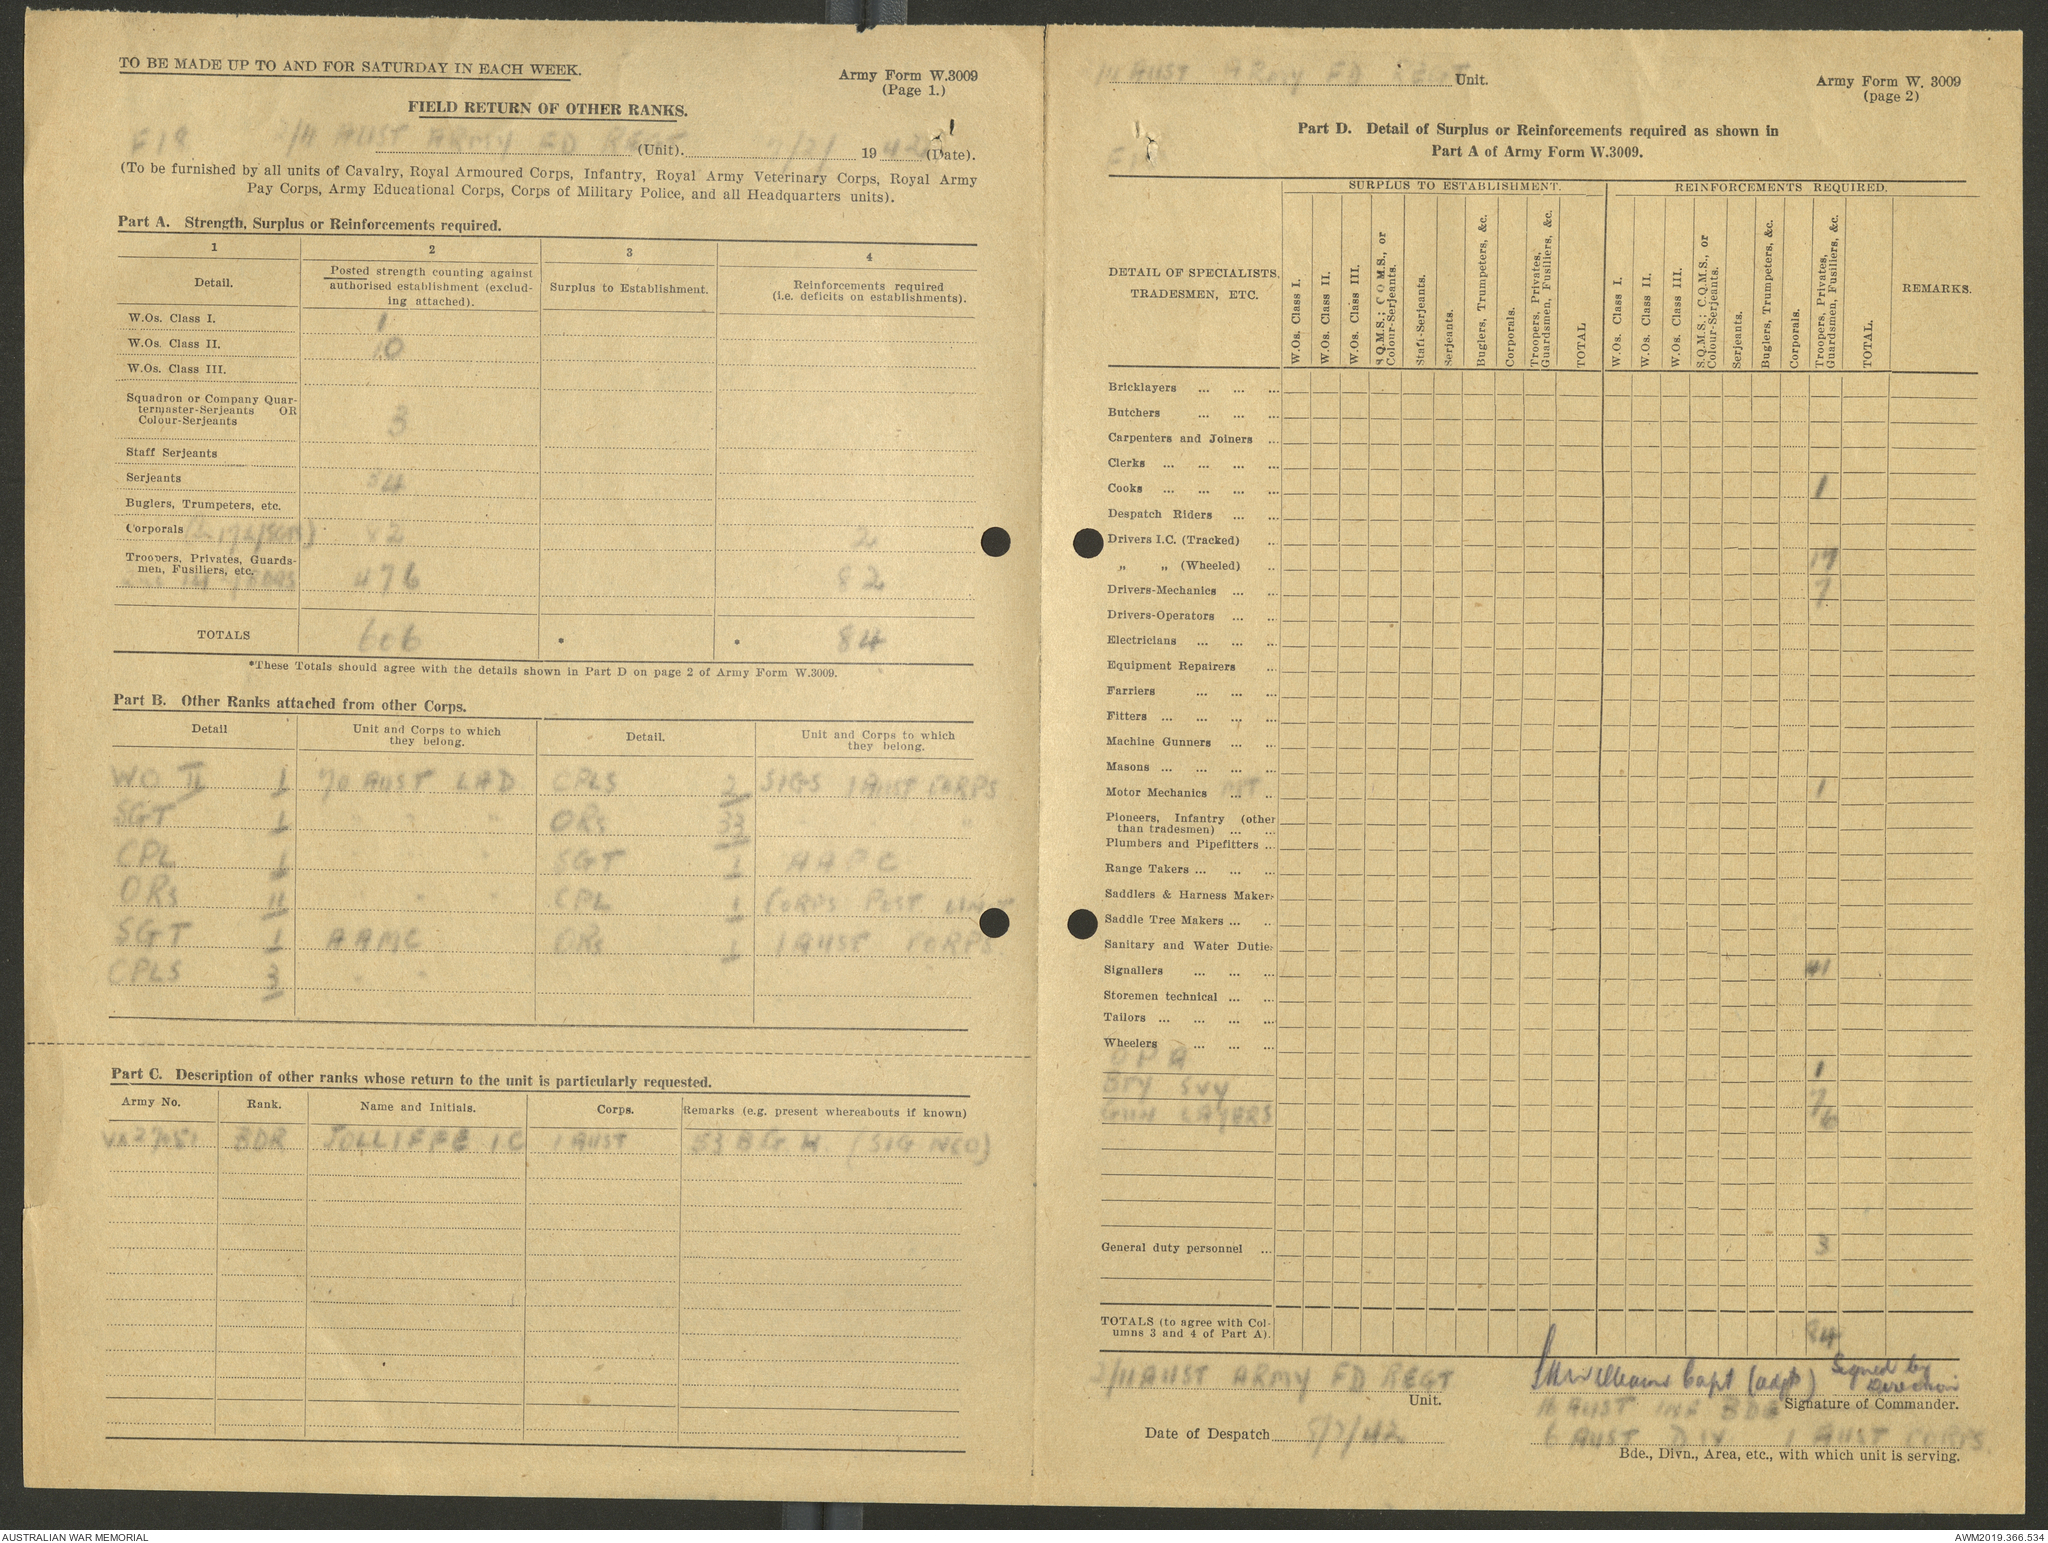 TO BE MADE UP TO AND FOR SATURDAY IN EACH WEEK.
Army Form W.3009
(Page 1.)
FIELD RETURN OF OTHER RANKS.
AUST ARMY FD REGT (Unit). 19 42 (Date).
(To be furnished by all units of Cavalry, Royal Armoured Corps, Infantry, Royal Army Veterinary Corps, Royal Army
Pay Corps, Army Educational Corps, Corps of Military Police, and all Headquarters units).
Part A. Strength, Surplus or Reinforcements required.
1 2 3 4
Detail.
Posted strength counting against
authorised establishment (exclud-
ing attached).
Surplus to Establishment.
Reinforcements required
(i.e. deficits on establishments).
W.Os. Class I. 1
W.Os. Class II. 10
W.Os. Class III.
Squadron or Company Quar-
termaster-Serjeants OR
Colour-Serjeants 3
Staff Serjeants
Serjeants 34
Buglers, Trumpeters, etc.
Corporals 2
Troopers, Privates, Guards-
men, Fusiliers, etc. 476 82
TOTALS 606 * * 84
*These Totals should agree with the details shown in Part D on page 2 of Army Form W.3009.
Part B. Other Ranks attached from other Corps.
Detail
Unit and Corps to which
they belong.
Detail.
Unit and Corps to which
they belong.
WO II 1 70 AUST LAD CPLS 2 SIGS 1 AUST CORPS
SGT 1 " " " ORs 33 " "
CPL 1 " " SGT 1
ORs 11 " " CPL 1 CORPS POST UNIT
SGT 1 AAMC ORs 1 1 AUST CORPS
CPLS 3 " "
Part C. Description of other ranks whose return to the unit is particularly requested.
Army No. Rank. Name and Initials. Corps. Remarks (e.g. present whereabouts if known)
BDR JOLLIFFE I C 1 AUST (SIG NCO)
AUST ARMY FD REGT Unit.
Army Form W. 3009
(page 2)
Part D. Detail of Surplus or Reinforcements required as shown in
Part A of Army Form W.3009.
DETAIL OF SPECIALISTS,
TRADESMEN, ETC.
SURPLUS TO ESTABLISHMENT.
W.Os. Class I.
W.Os. Class II.
W.Os. Class III.
S.Q.M.S.; C.Q.M.S., or
Colour-Serjeants.
Staff-Serjeants.
Serjeants.
Buglers, Trumpeters, &c.
Corporals.
Troopers, Privates,
Guardsmen, Fusiliers, &c.
TOTAL
REINFORCEMENTS REQUIRED.
W.Os. Class I.
W.Os. Class II.
W.Os. Class III.
S.Q.M.S.; C.Q.M.S., or
Colour-Serjeants.
Serjeants.
Buglers, Trumpeters, &c.
Corporals.
Troopers, Privates,
Guardsmen, Fusiliers, &c.
TOTAL.
REMARKS.
Bricklayers ... ... ...
Butchers ... ... ...
Carpenters and Joiners ...
Clerks ... ... ... ...
Cooks ... ... ... ... 1
Despatch Riders ... ...
Drivers I.C. (Tracked) ..
„ „ (Wheeled) .. 17
Drivers-Mechanics ... ... 7
Drivers-Operators ... ...
Electricians ... ... ...
Equipment Repairers ...
Farriers ... ... ...
Fitters ... ... ... ...
Machine Gunners ... ...
Masons ... ... ... ...
Motor Mechanics ... .. 1
Pioneers, Infantry (other
than tradesmen) ... ...
Plumbers and Pipefitters ...
Range Takers ... ... ...
Saddlers & Harness Makers
Saddle Tree Makers ... ..
Sanitary and Water Duties
Signallers ... ... ... 41
Storemen technical ... ...
Tailors ... ... ... ...
Wheelers ... ... ...
1
SVY 7
GUN LAYERS 6
General duty personnel ... 3
TOTALS (to agree with Col-
umns 3 and 4 of Part A). 84
2/11 AUST ARMY FD REGT
Unit.
Williams Capt (adjt) Signed by
Direction
Signature of Commander.
AUST INF BDE
Date of Despatch /42
6 AUST DIV 1 AUST CORPS.
Bde., Divn., Area, etc., with which unit is serving.
AUSTRALIAN WAR MEMORIAL
AWM2019.366.534